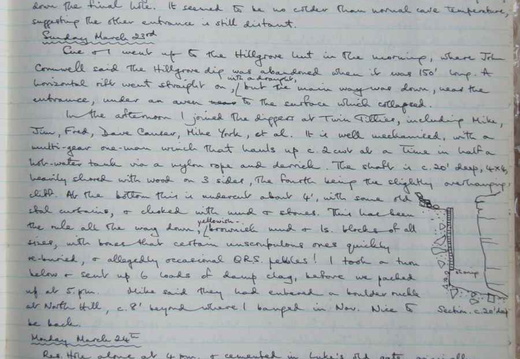 down the final hole. It seemed to be no colder than normal cave temperature,
suggesting the other entrance is still distant.
Sunday March 23rd
Sue & I went up to the Hillgrove hut in the morning, where John
Cornwell said the Hillgrove dig was abandoned when it was 150' long. A
with a draught,
horizontal rift went straight on, but the main way was down, near the
entrance, under an aven to the surface which collapsed.
In the afternoon I joined the diggers at Twin Titties, including Mike,
Jim, Fred, Dave Causer, Mike York, et al. It is well mechanised, with a
multi-gear one-man winch that hauls up c. 2 cwt at a time in half a
hot-water tank via a nylon rope and derrick. The shaft is c. 20' deep, 4 x 6,
heavily shored with wood on 3 sides, the fourth being the slightly overhanging
cliff. At the bottom this is undercut about 4', with some old
stal curtains, & choked with mud & stones. This has been
yellowish-
the rule all the way down, brownish mud & ls. blocks of all
sizes, with bones that certain unscrupulous ones quickly
re-buried, & allegedly occasional O.R.S. pebbles! I took a turn
below & sent up 6 loads of damp clay, before we packed
up at 5 pm. Mike said they had entered a boulder ruckle
at North Hill, c. 8' beyond where I banged in Nov. Nice to
be back.
Section. c. 20' deep
Monday March 24th
Res. Hole alone at 4 p.m. & cemented in Luke's old gate,